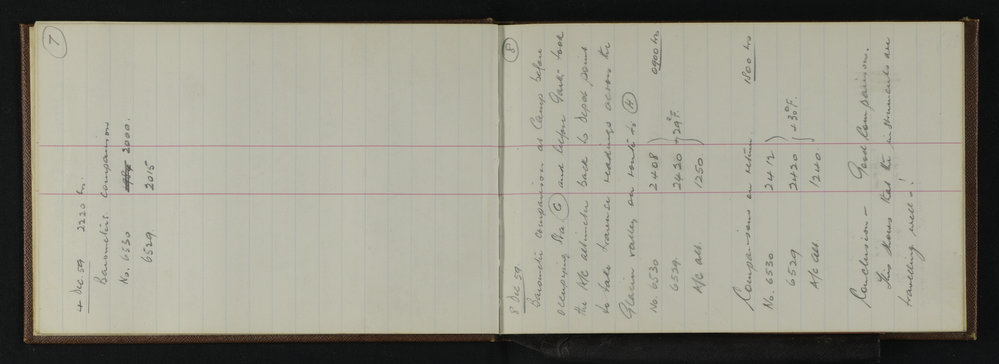 7
4 Dec 59 2220 hr.
Barometer comparison
No. 6530 2000.
6529 2015
8
8 Dec 59.
Barometer comparison at Camp before
occupying Sta. G and before Garth took
the A/c altimeter back to depot point
to take traverse readings across the
Glacier valley en route to H
0900 hrs
No. 6530 2408
6529. 2420 +29°F.
A/c alt. 1250
Comparisons on return. 1800 hrs
No. 6530 2412
6529 2420 +30°F.
A/c alt 1240
Conclusion - Good Comparison.
This shows that the instruments are
travelling well!